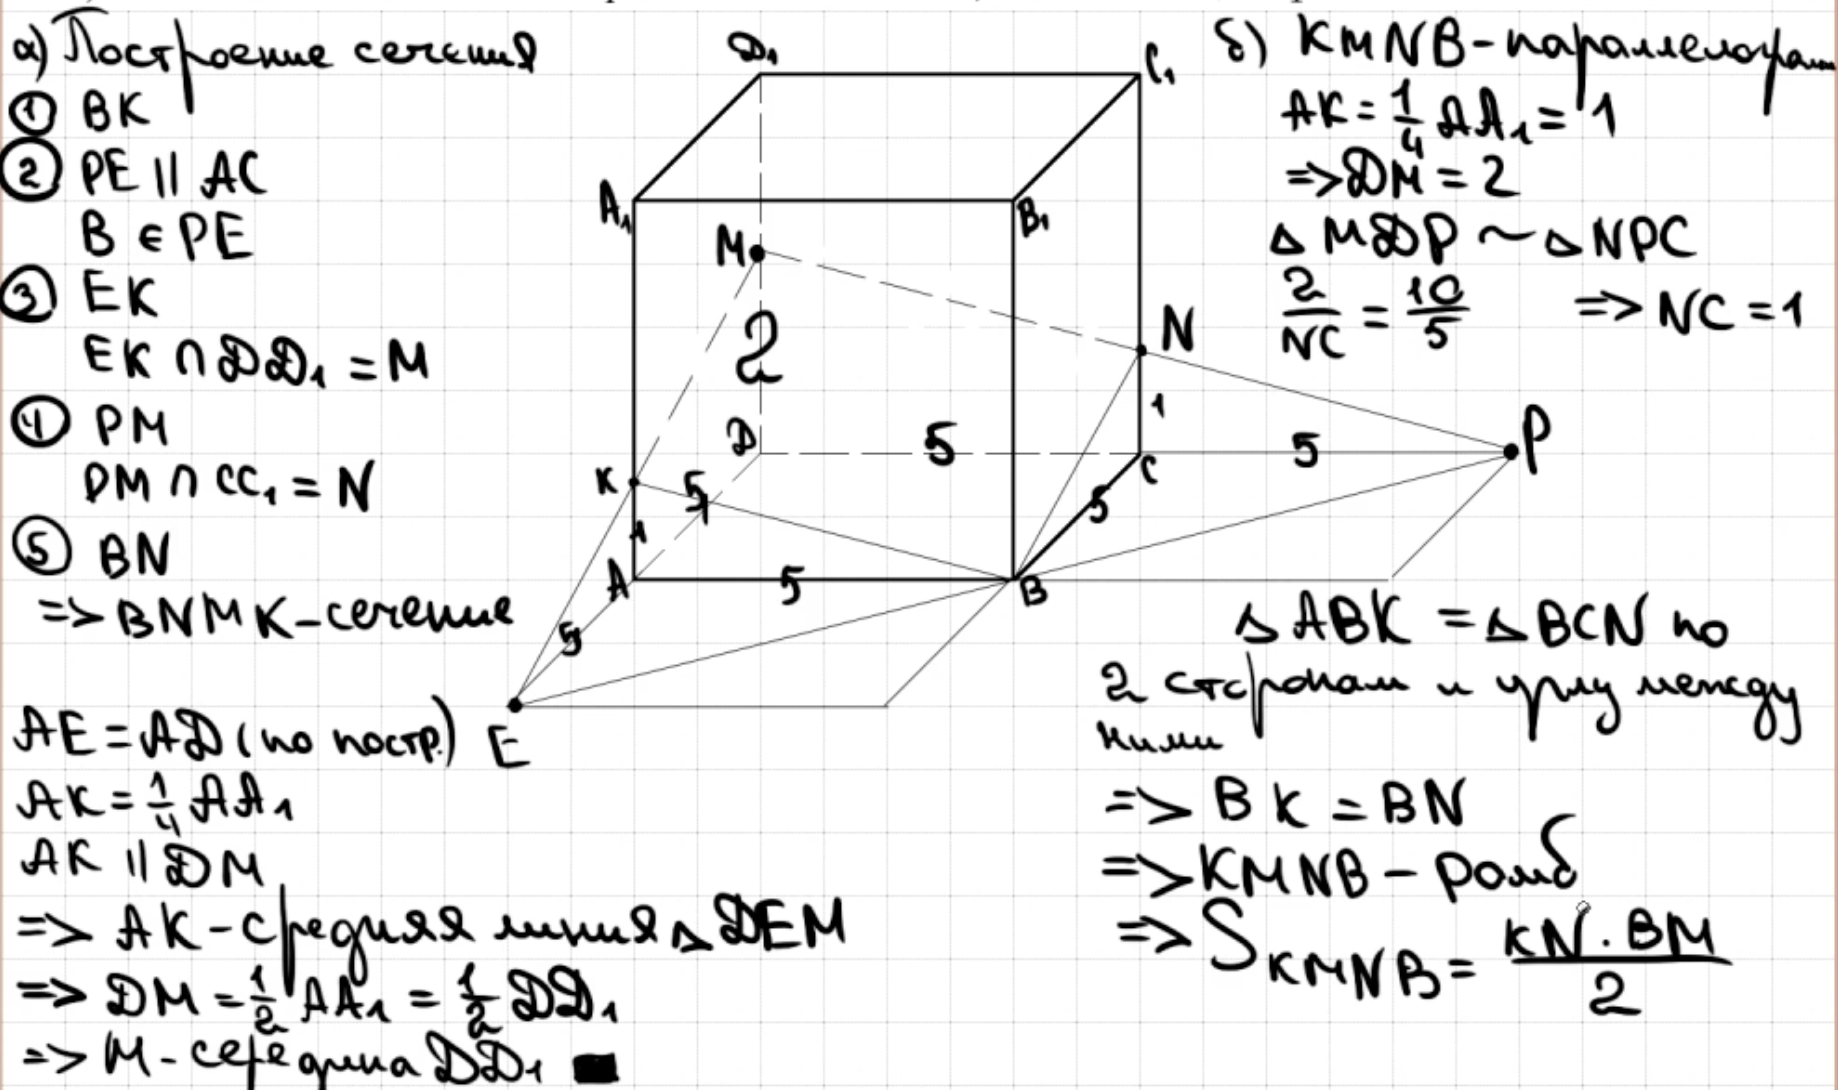 а) Построение сечения
① BK
② PE || AC
B ∈ PE
③ EK
EK ∩ DD₁ = M
④ PM
PM ∩ CC₁ = N
⑤ BN
=> BNMK - сечение
AE = AD (по постр.)
AK = 1/4 AA₁
AK || DM
=> AK - средняя линия △ DEM
=> DM = 1/2 AA₁ = 1/2 DD₁
=> M - середина DD₁
D₁
C₁
A₁
B₁
M
2
N
1
D
5
C
5
P
K
5
5
1
A
5
B
5
E
б) KMNB - параллелограмм
AK = 1/4 AA₁ = 1
=> DM = 2
△ MDP ~ △ NPC
2/NC = 10/5 => NC = 1
△ ABK = △ BCN по
2 сторонам и углу между
ними
=> BK = BN
=> KMNB - ромб
=> S KMNB = KN · BM / 2